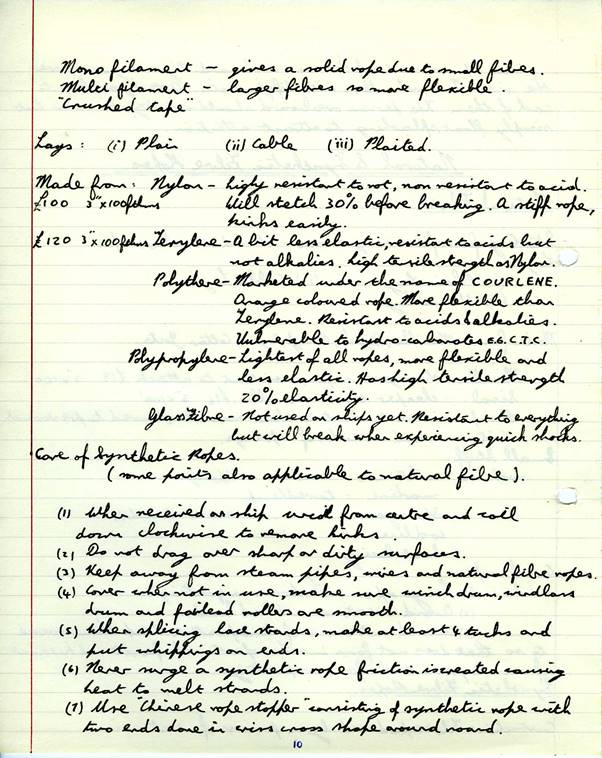 Mono filament – gives a solid rope due to small fibres.
Multi filament – larger fibres so more flexible.
"Crushed tape"
Lays: (i) Plain (ii) Cable (iii) Plaited.
Made from: Nylon – highly resistant to rot, non resistant to acid.
£100 3"x100fthms Will stretch 30% before breaking. A stiff rope,
kinks easily.
£120 3"x100fthms Terylene – A bit less elastic, resistant to acids but
not alkalies. high tensile strength as Nylon.
Polythere – Marketed under the name of COURLENE.
Orange coloured rope. More flexible than
Terylene. Resistant to acids & alkalies.
Vulnerable to hydro-carbonates E.G. C.T.C.
Polypropylene – Lightest of all ropes, more flexible and
less elastic. Has high tensile strength
20% elasticity.
Glass Fibre – Not used on ships yet. Resistant to everything
but will break when experiencing quick shocks.
Care of Synthetic Ropes.
(some points also applicable to natural fibre).
(1) When received on ship uncoil from centre and coil
down clockwise to remove kinks.
(2) Do not drag over sharp or dirty surfaces.
(3) Keep away from steam pipes, wires and natural fibre ropes.
(4) Cover when not in use, make sure winch drum, windlass
drum and fairlead rollers are smooth.
(5) When splicing lock strands, make at least 4 tucks and
put whippings on ends.
(6) Never surge a synthetic rope friction is created causing
heat to melt strands.
(7) Use "Chinese rope stopper" consisting of synthetic rope with
two ends done in criss cross shape around round.
10